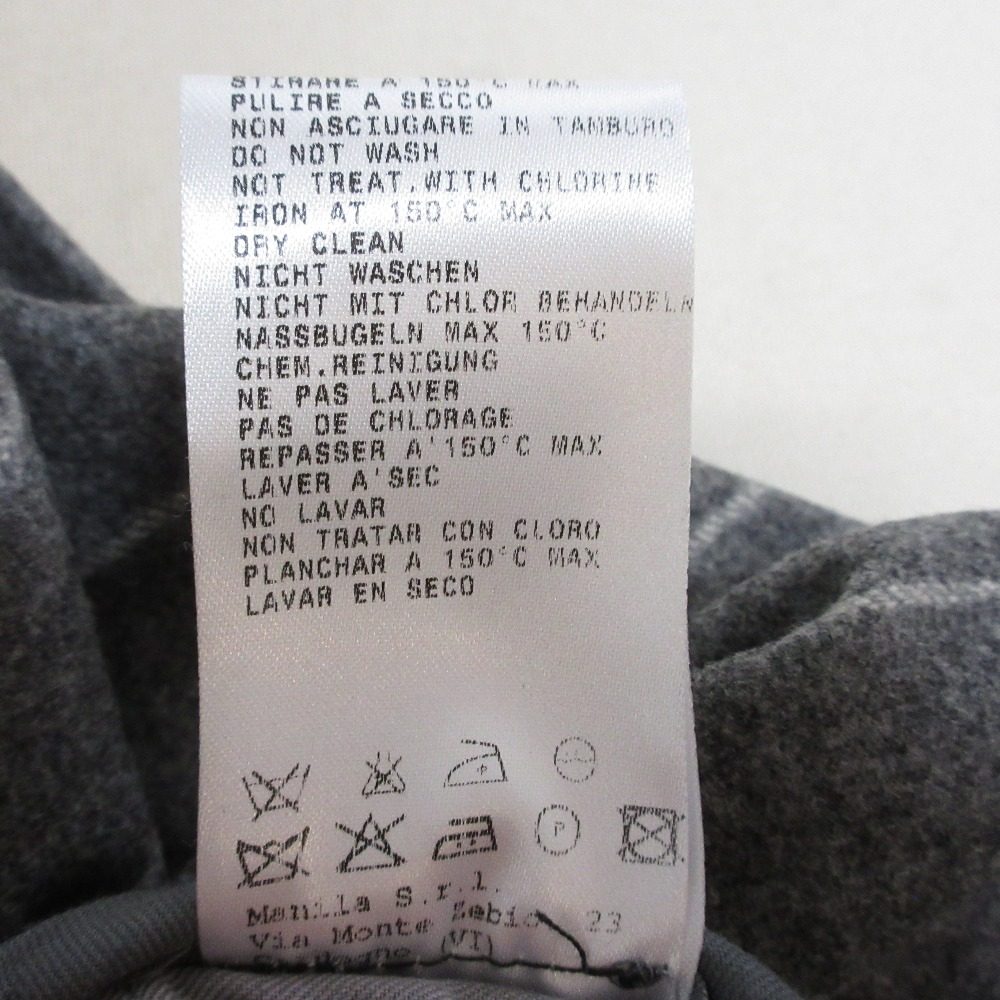 STIRARE A 150°C MAX
PULIRE A SECCO
NON ASCIUGARE IN TAMBURO
DO NOT WASH
NOT TREAT.WITH CHLORINE
IRON AT 150°C MAX
DRY CLEAN
NICHT WASCHEN
NICHT MIT CHLOR BEHANDELN
NASSBUGELN MAX 150°C
CHEM.REINIGUNG
NE PAS LAVER
PAS DE CHLORAGE
REPASSER A'150°C MAX
LAVER A'SEC
NO LAVAR
NON TRATAR CON CLORO
PLANCHAR A 150°C MAX
LAVAR EN SECO
P
Manila s.r.l.
Via Monte Zebio 23
(VI)